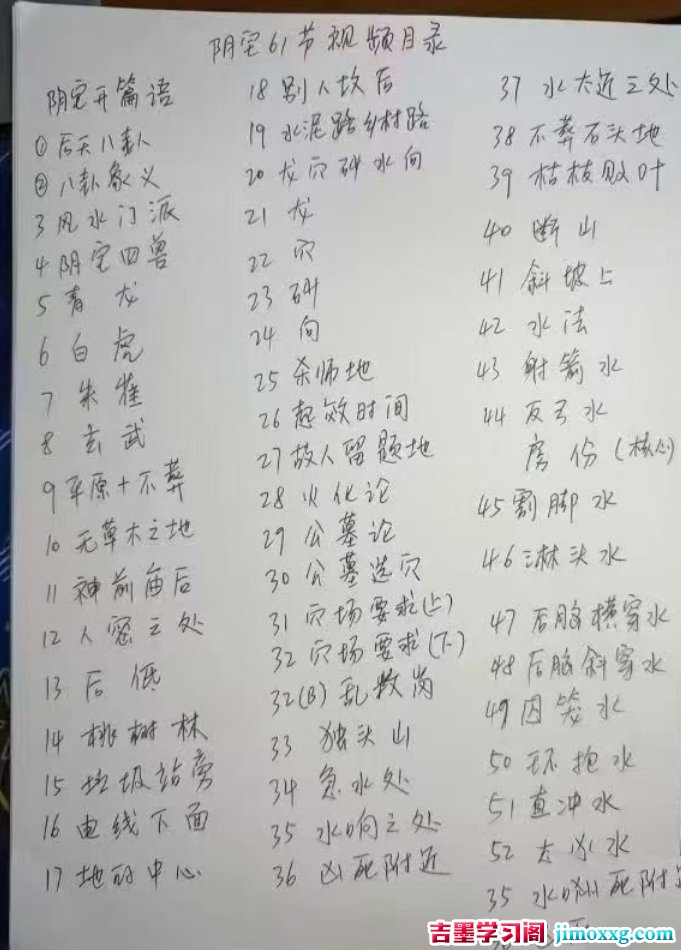 阴宅61节视频目录
阴宅开篇语
①后天八卦
②八卦象义
3 风水门派
4 阴宅四兽
5 青龙
6 白虎
7 朱雀
8 玄武
9 平原十不葬
10 无草木之地
11 神前庙后
12 人密之处
13 后低
14 桃树林
15 垃圾站旁
16 电线下面
17 地的中心
18 别人坟后
19 水泥路乡村路
20 龙穴砂水向
21 龙
22 穴
23 砂
24 向
25 杀师地
26 起效时间
27 故人留题地
28 火化论
29 公墓论
30 公墓选穴
31 穴场要求(上)
32 穴场要求(下)
32(B) 乱坟岗
33 独头山
34 急水处
35 水响之处
36 凶死附近
37 水太近之处
38 不葬石头地
39 枯枝败叶
40 断山
41 斜坡上
42 水法
43 射箭水
44 反弓水
房份(核心)
45 割脚水
46 淋头水
47 后脑横穿水
48 后脑斜穿水
49 囚笼水
50 环抱水
51 直冲水
52 大凶水
35 水响凶死附近
吉墨学习阁 jimoxxg.com